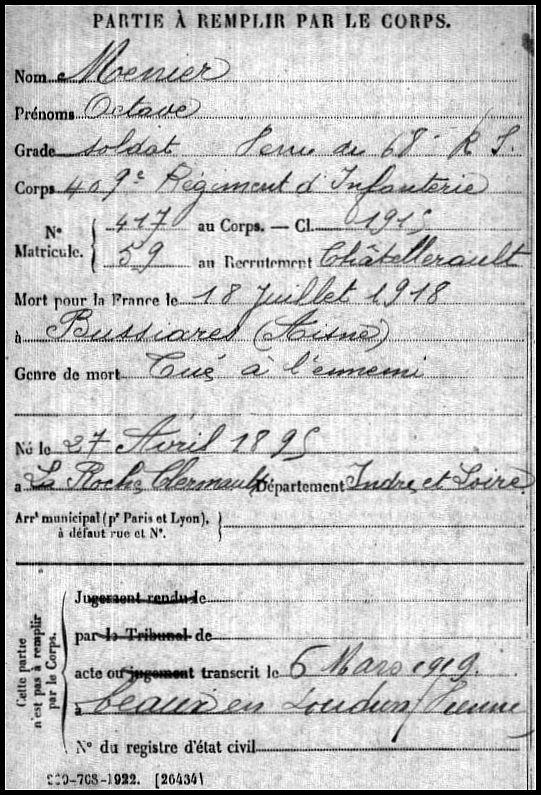 PARTIE À REMPLIR PAR LE CORPS.
Nom Menier
Prénoms Octave
Grade soldat Venu du 68e R I.
Corps 409e Régiment d'Infanterie
N° Matricule. 417 au Corps. — Cl. 1915
59 au Recrutement Châtellerault
Mort pour la France le 18 Juillet 1918
à Bussiares (Aisne)
Genre de mort Tué à l'ennemi
Né le 27 Avril 1895
a La Roche Clermault Département Indre et Loire
Arrt municipal (pr Paris et Lyon),
à défaut rue et N°.
Cette partie n'est pas à remplir par le Corps.
Jugement rendu le
par le Tribunal de
acte ou jugement transcrit le 6 Mars 1919.
à Ceaux en Loudun Vienne
N° du registre d'état civil
-708-1922. [26434]